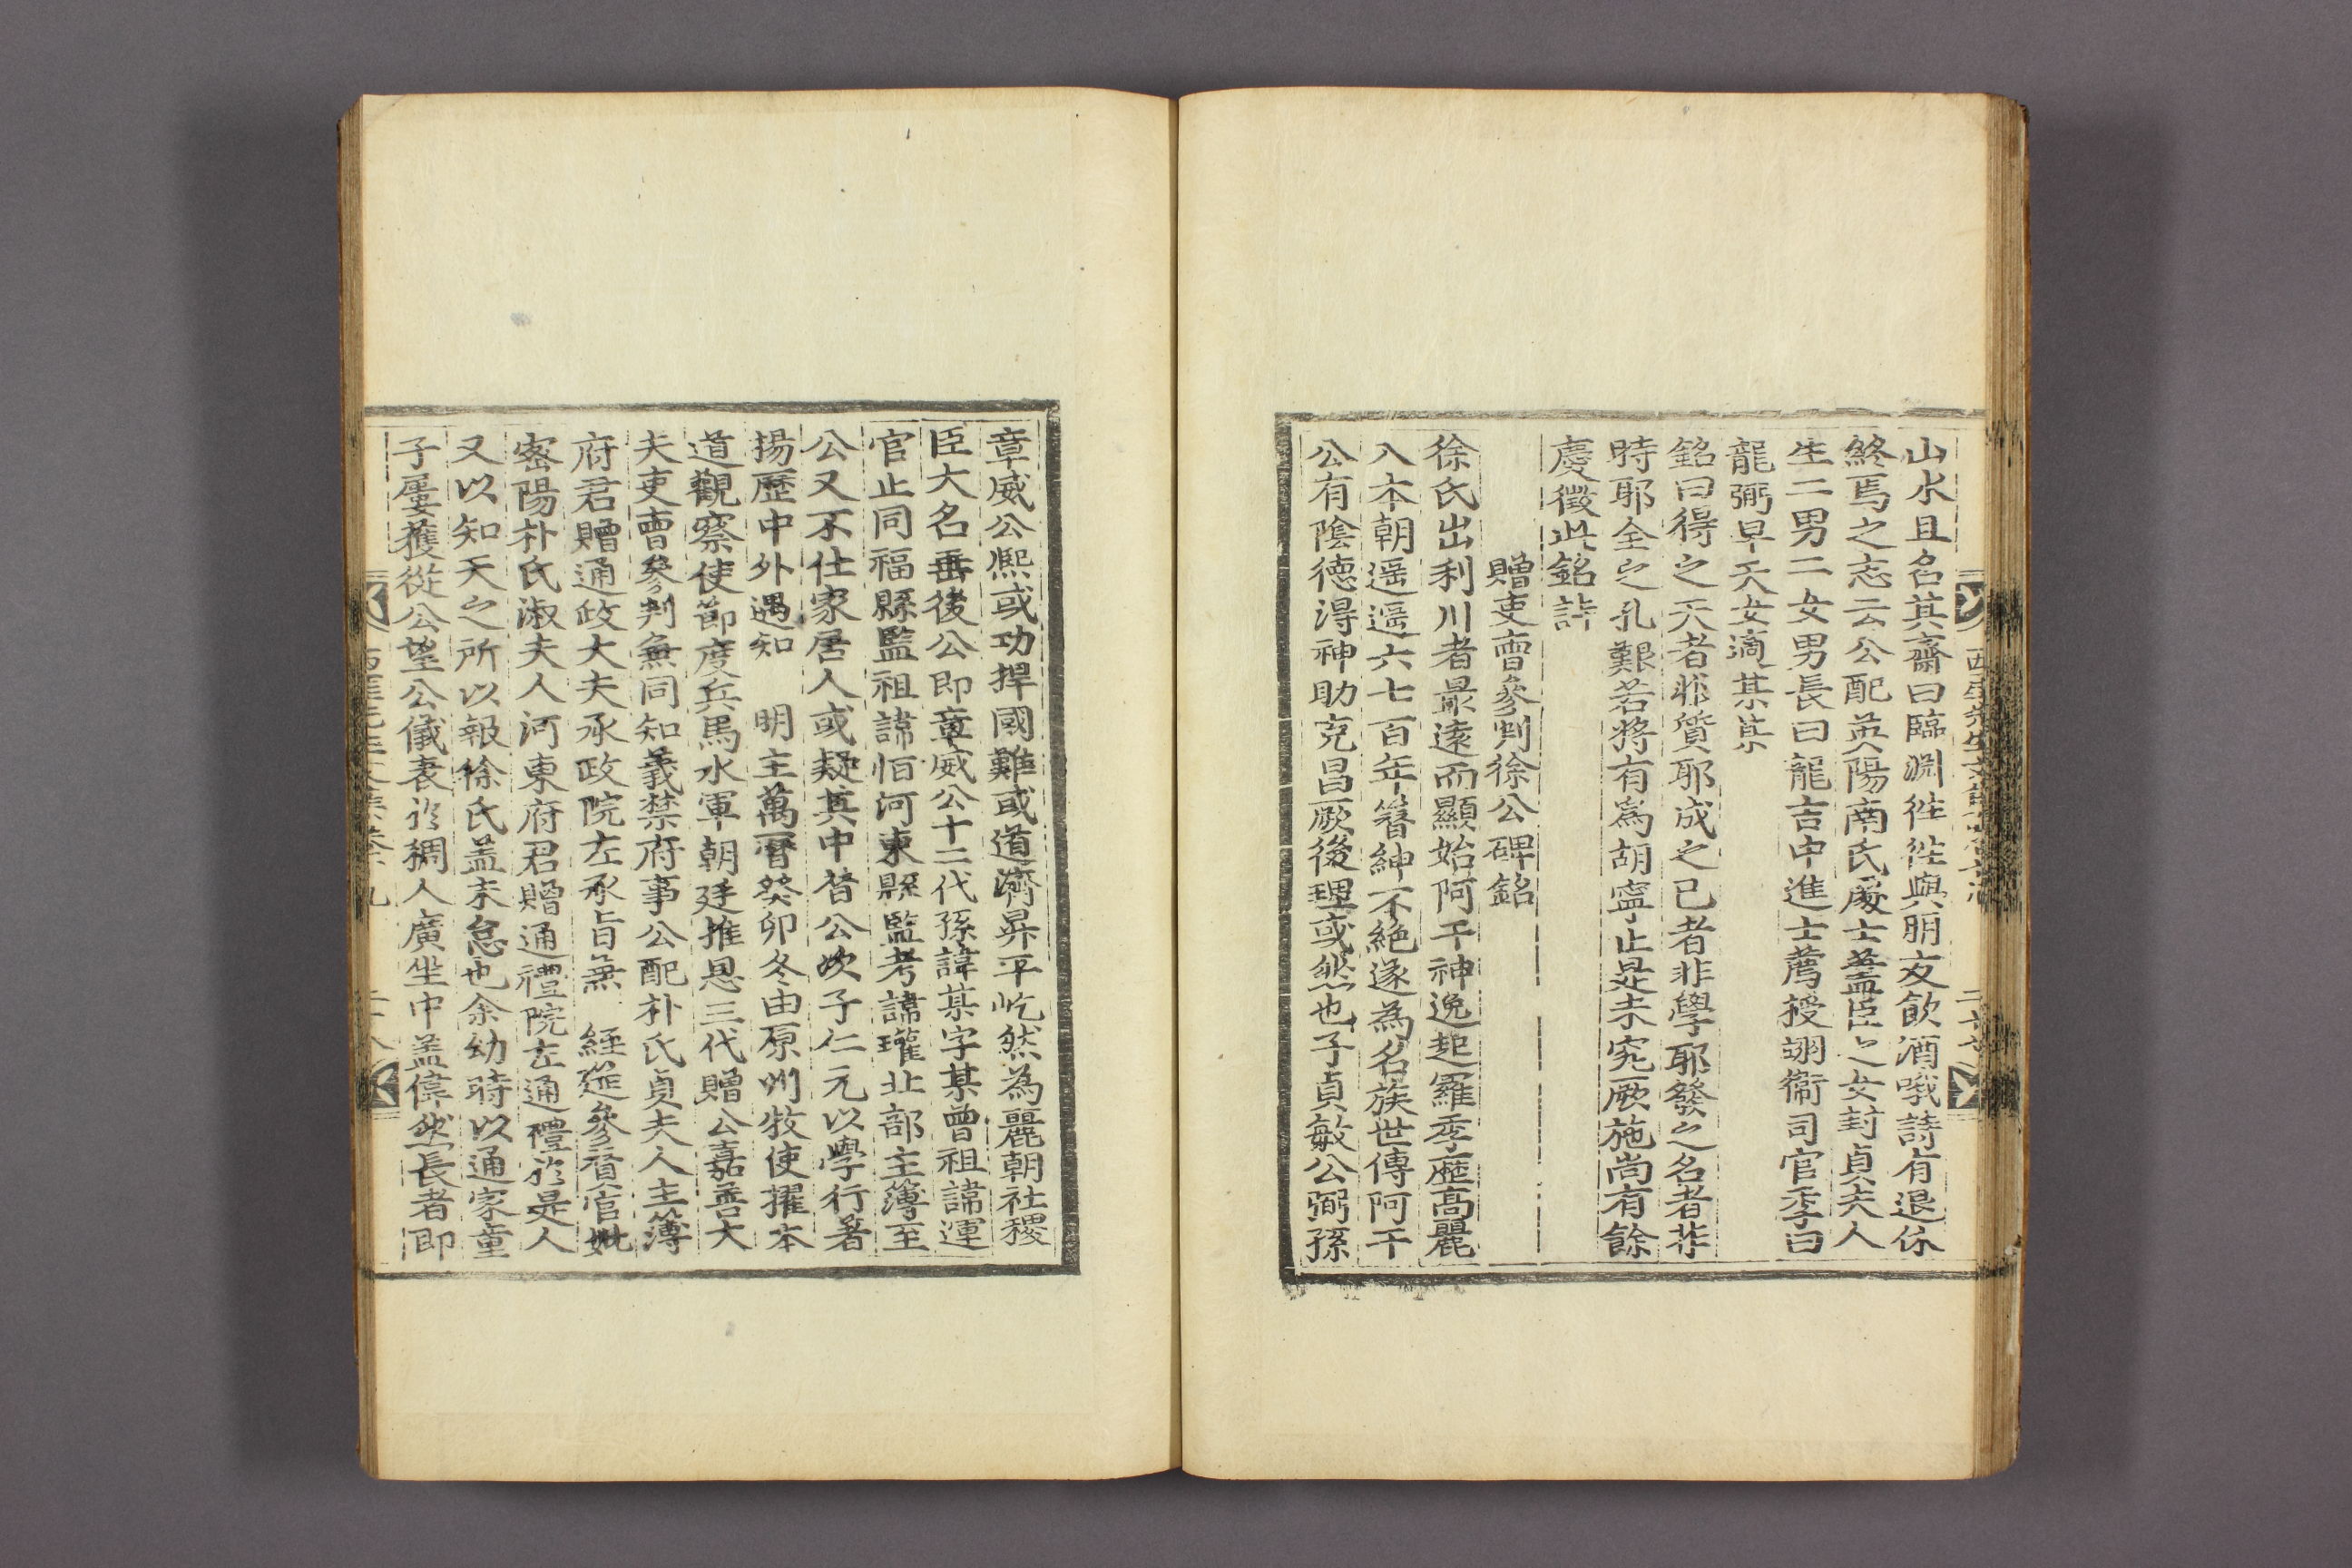 山水且名其齋曰臨淵徃徃與朋友飮酒哦詩有退休
終焉之志云公配英陽南氏處士藎臣之女封貞夫人
生二男二女男長曰龍吉中進士薦授翊衛司官季曰
龍弼早夭女適某某
銘曰得之天者非質耶成之已者非學耶發之名者非
時耶全之孔艱若將有爲胡寧止是未究厥施尚有餘
慶徵此銘詩
贈吏曺參判徐公碑銘
徐氏出利川者最遠而顯始阿干神逸起羅季歷高麗
入本朝遥遥六七百年簪紳不絶遂為名族世傳阿干
公有陰德淂神助克昌厥後理或然也子貞敏公弼孫
章威公熙或功捍國難或道濟昇平屹然為麗朝社稷
臣大名垂後公即章威公十二代孫諱某字某曾祖諱運
官止同福縣監祖諱佰河東縣監考諱瓘北部主簿至
公又不仕家居人或疑其中替公次子仁元以學行著
揚歷中外遇知 明主萬曆癸卯冬由原州牧使擢本
道觀察使節度兵馬水軍朝廷推恩三代贈公嘉善大
夫吏曺參判兼同知義禁府事公配朴氏貞夫人主簿
府君贈通政大夫承政院左承旨兼 經筵參賛官妣
密陽朴氏淑夫人河東府君贈通禮院左通禮於是人
又以知天之所以報徐氏盖未怠也余幼時以通家童
子屢獲從公望公儀表於稠人廣坐中盖偉然長者即